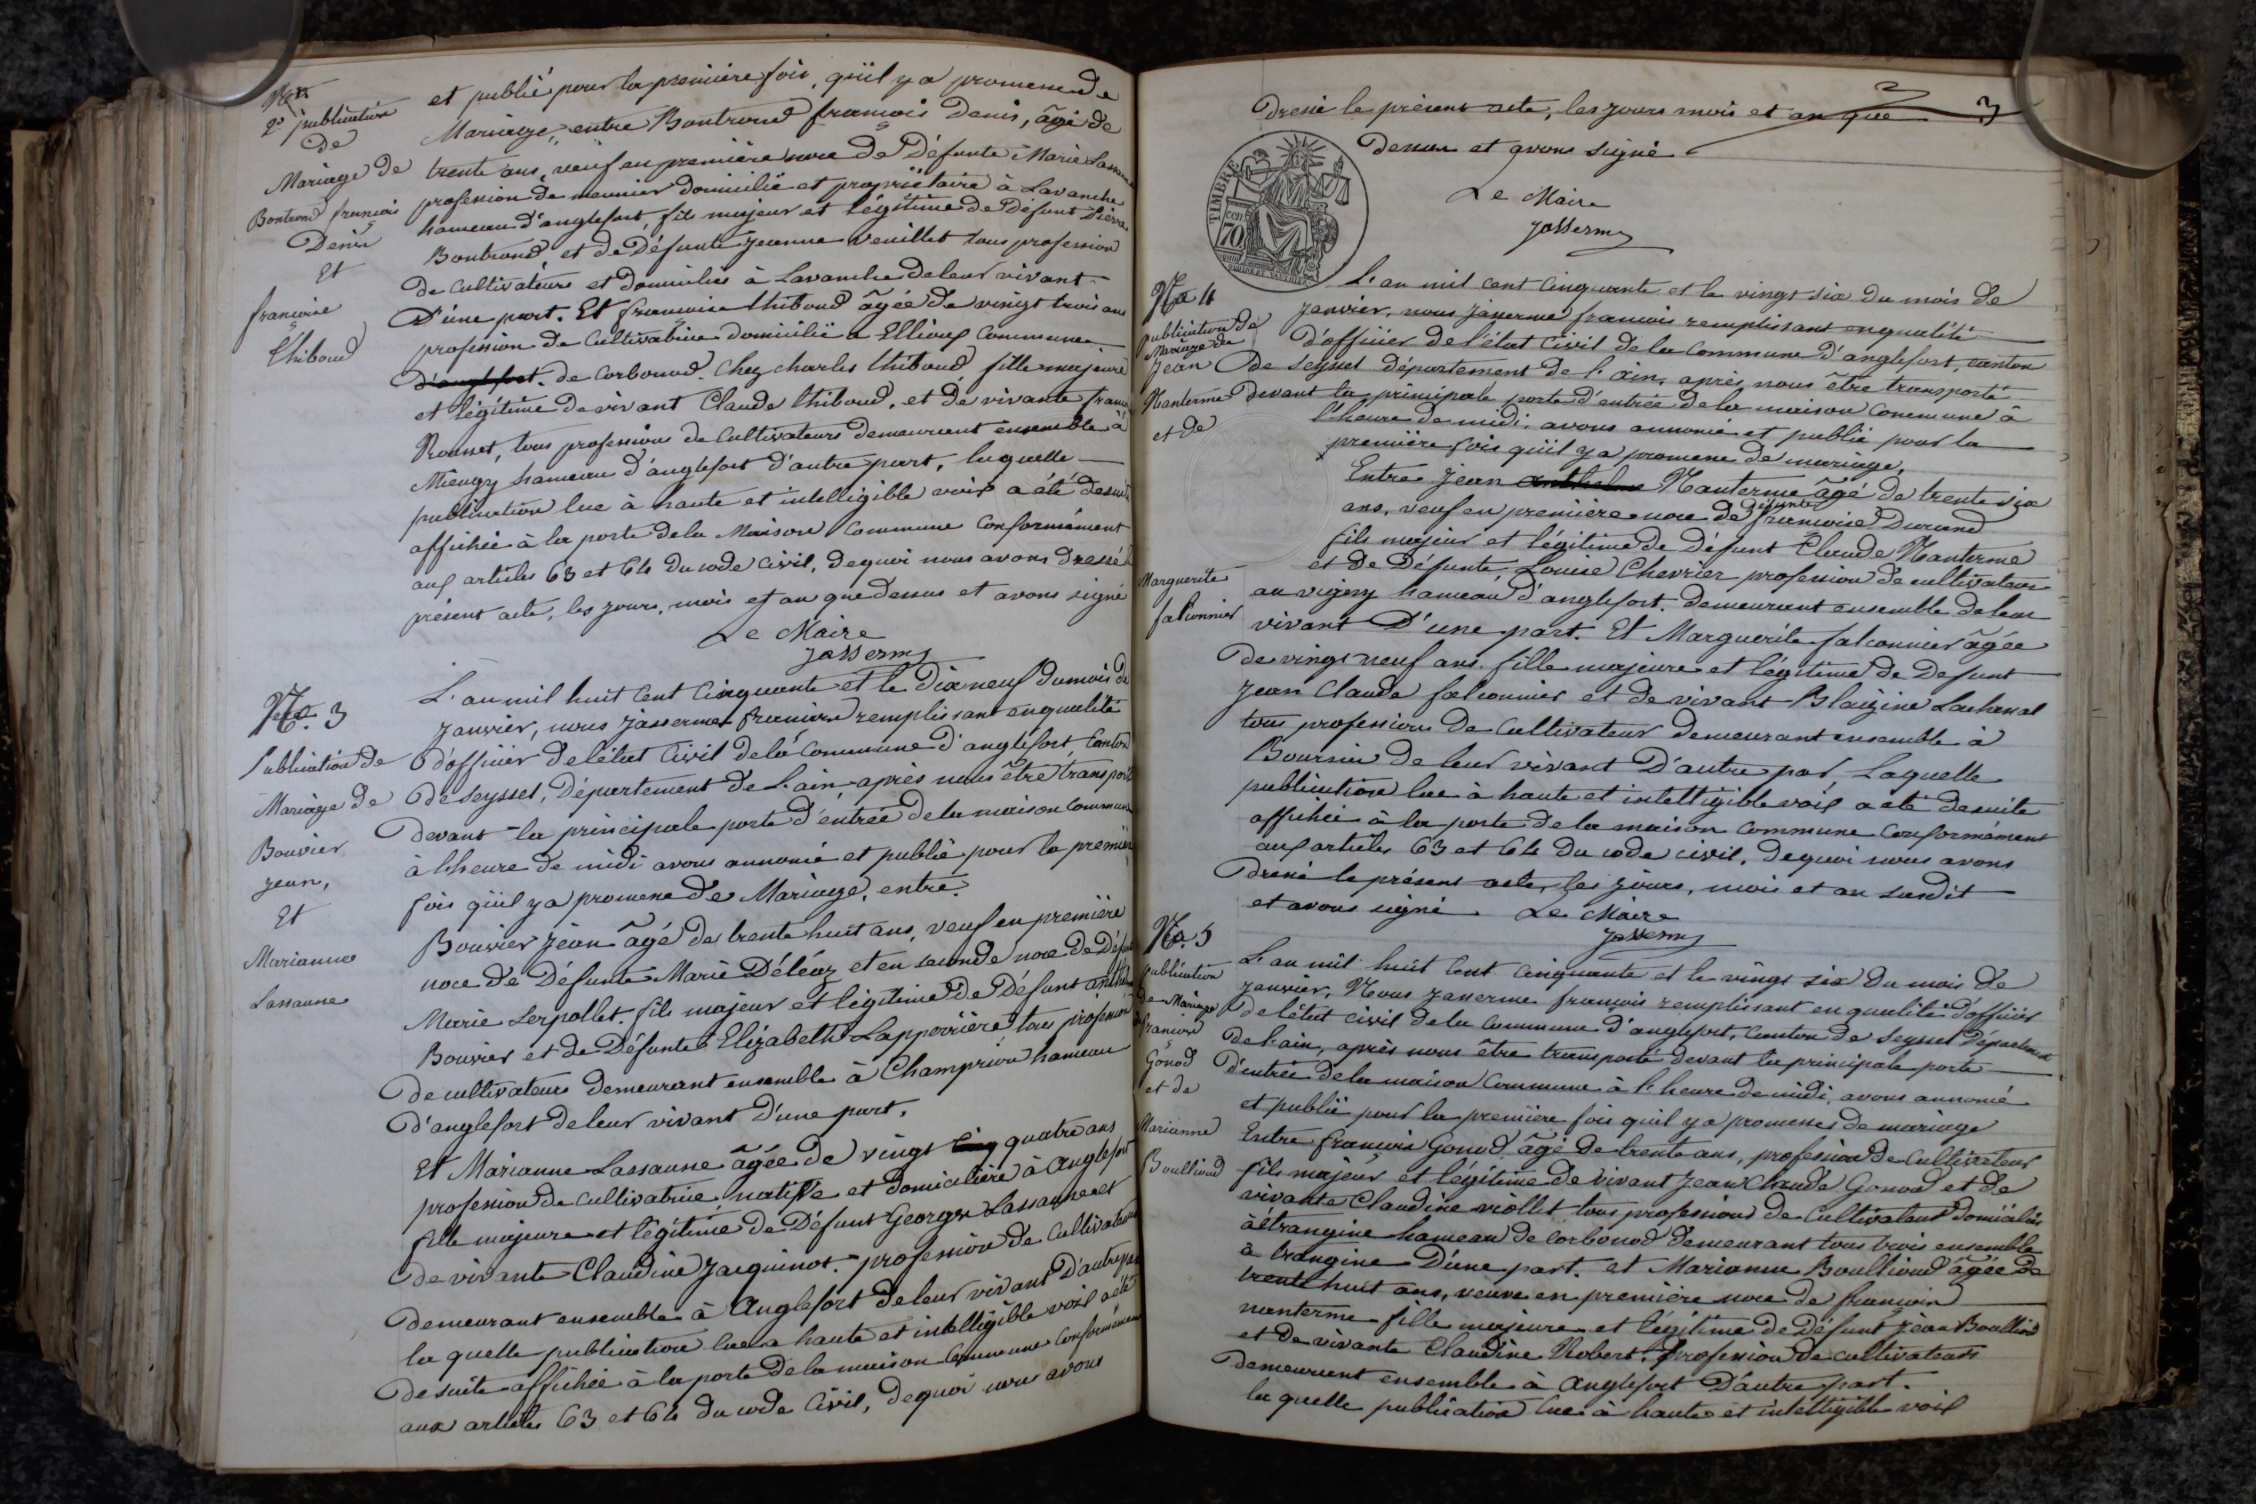 2e publication
de
Mariage de
Bontrond françois
Denis
Et
françoise
thiboud
et publié pour la première fois, qu'il y a promesse de
Mariage, entre Bontrond françois Denis, âgé de
trente ans, veuf en première noce de Défunte Marie
profession de meunier domicilié et propriétaire à Lavanche
hameau d'anglefort, fils majeur et légitime de Défunt Pierre
Bontrond, et de Défunte Jeanne Venillet tous profession
de cultivateurs et domiciliés à Lavanche de leur vivant
D'une part. Et françoise thiboud âgée de vingt trois ans
profession de cultivatrice domicilié a Ellioux Commune
d'anglefort. de Corbonod. Chez charles thiboud fille majeure
et légitime de vivant Claude thiboud, et de vivante
Rousset, tous professions de Cultivateurs demeurant ensemble à
Mieugy hameau d'anglefort d'autre part, laquelle
publication lue à haute et intelligible voix a été desuite
affichée à la porte de la Maison Commune Conformément
aux articles 63 et 64 du code civil, dequoi nous avons dressé
présent acte, les jours, mois et an que dessus et avons signé
Le Maire
Jasserme
No. 3
Publication de
Mariage de
Bouvier
Jean,
Et
Marianne
Lassanne
L'an mil huit cent cinquante et le dix neuf du mois de
Janvier, nous Jasserme françois remplissant en qualité
d'officier de l'état Civil de la Commune d'anglefort, Canton
de Seyssel, Département de L'ain après nous être transporté
devant la principale porte d'entrée de la maison Commune
à l'heure de midi avons annoncé et publié pour la première
fois qu'il y a promesse de Mariage, entre
Bouvier Jean âgé de trente huit ans, veuf en première
noce de Défunte Marie Déléaz et en seconde noce de Défunte
Marie Serpollet. fils majeur et légitime de Défunt anthelme
Bouvier et de Défunte Elizabeth Lapperrière tous profession
de cultivateurs demeurant ensemble à Champrion hameau
d'anglefort de leur vivant D'une part.
Et Marianne Lassanne âgée de vingt cinq quatre ans
profession de cultivatrice native et domicilière à Anglefort
fille majeure et légitime de Défunt George Lassanne et
de vivante Claudine Jacquinot. profession de Cultivateurs
demeurant ensemble à Anglefort de leur vivant D'autre part
la quelle publication lue a haute et intelligible voix a été
de suite affichée à la porte de la maison Commune Conformément
aux articles 63 et 64 du code Civil, dequoi nous avons
3
Dressé le présent acte, les jours mois et an que
dessus et avons signé
Le Maire
Jasserme
TIMBRE
70
No 4
publication de
Mariage de
Jean
Nanterme
et de
Marguerite
falconnier
L'an mil cent cinquante et le vingt six du mois de
Janvier, nous Jasserme françois remplissant en qualité
d'officier de l'état civil de la commune d'anglefort, canton
de Seyssel département de l'ain, après nous être transporté
devant la principale porte d'entrée de la maison Commune à
l'heure de midi, avons annoncé et publié pour la
première fois qu'il y a promesse de mariage,
Entre Jean anthelme Nanterme âgé de trente six
ans, veuf en première noce de défunte françoise Durand
fils majeur et légitime de Défunt Claude Nanterme
et de Défunte Louise Chevrier profession de cultivateurs
au vigny hameau d'anglefort. demeurant ensemble de leur
vivant D'une part. Et Marguerite falconnier âgée
de vingt neuf ans. fille majeure et légitime de Defunt
Jean Claude falconnier et de vivant Blaizine Lachenal
tous professions de Cultivateur demeurant ensemble à
de leur vivant D'autre part Laquelle
publication lue à haute et intelligible voix a été desuite
affichée à la porte de la maison Commune Conformément
aux articles 63 et 64 du code civil, dequoi nous avons
dressé le présent acte, les jours, mois et an susdit
et avons signé. Le Maire
Jasserme
No. 5
publication
de Mariage
françois
Gonod
et de
Marianne
Boulliod
L'an mil huit cent cinquante et le vingt six du mois de
Janvier, Nous Jasserme françois remplissant en qualité d'officier
de l'état civil de la commune d'anglefort, canton de Seyssel Département
de l'ain, après nous être transporté devant la principale porte
d'entrée de la maison Commune à l'heure de midi, avons annoncé
et publié pour la première fois qu'il y a promesses de mariage
Entre françois Gonod. âgé de trente ans, profession de Cultivateur
fils majeur et légitime de vivant Jean Claude Gonod et de
vivante Claudine viollet tous professions de Cultivateurs domiciliés
à étrangine hameau de Corbonod demeurant tous trois ensemble
à trangine D'une part. et Marianne Boulliod âgée de
trente huit ans, veuve en première noce de françois
nanterme fille majeure et légitime de Défunt Jean Boulliod
et de vivante Claudine Robert. profession de cultivateurs
demeurant ensemble à Anglefort D'autre part.
la quelle publication lue à haute et intelligible voix